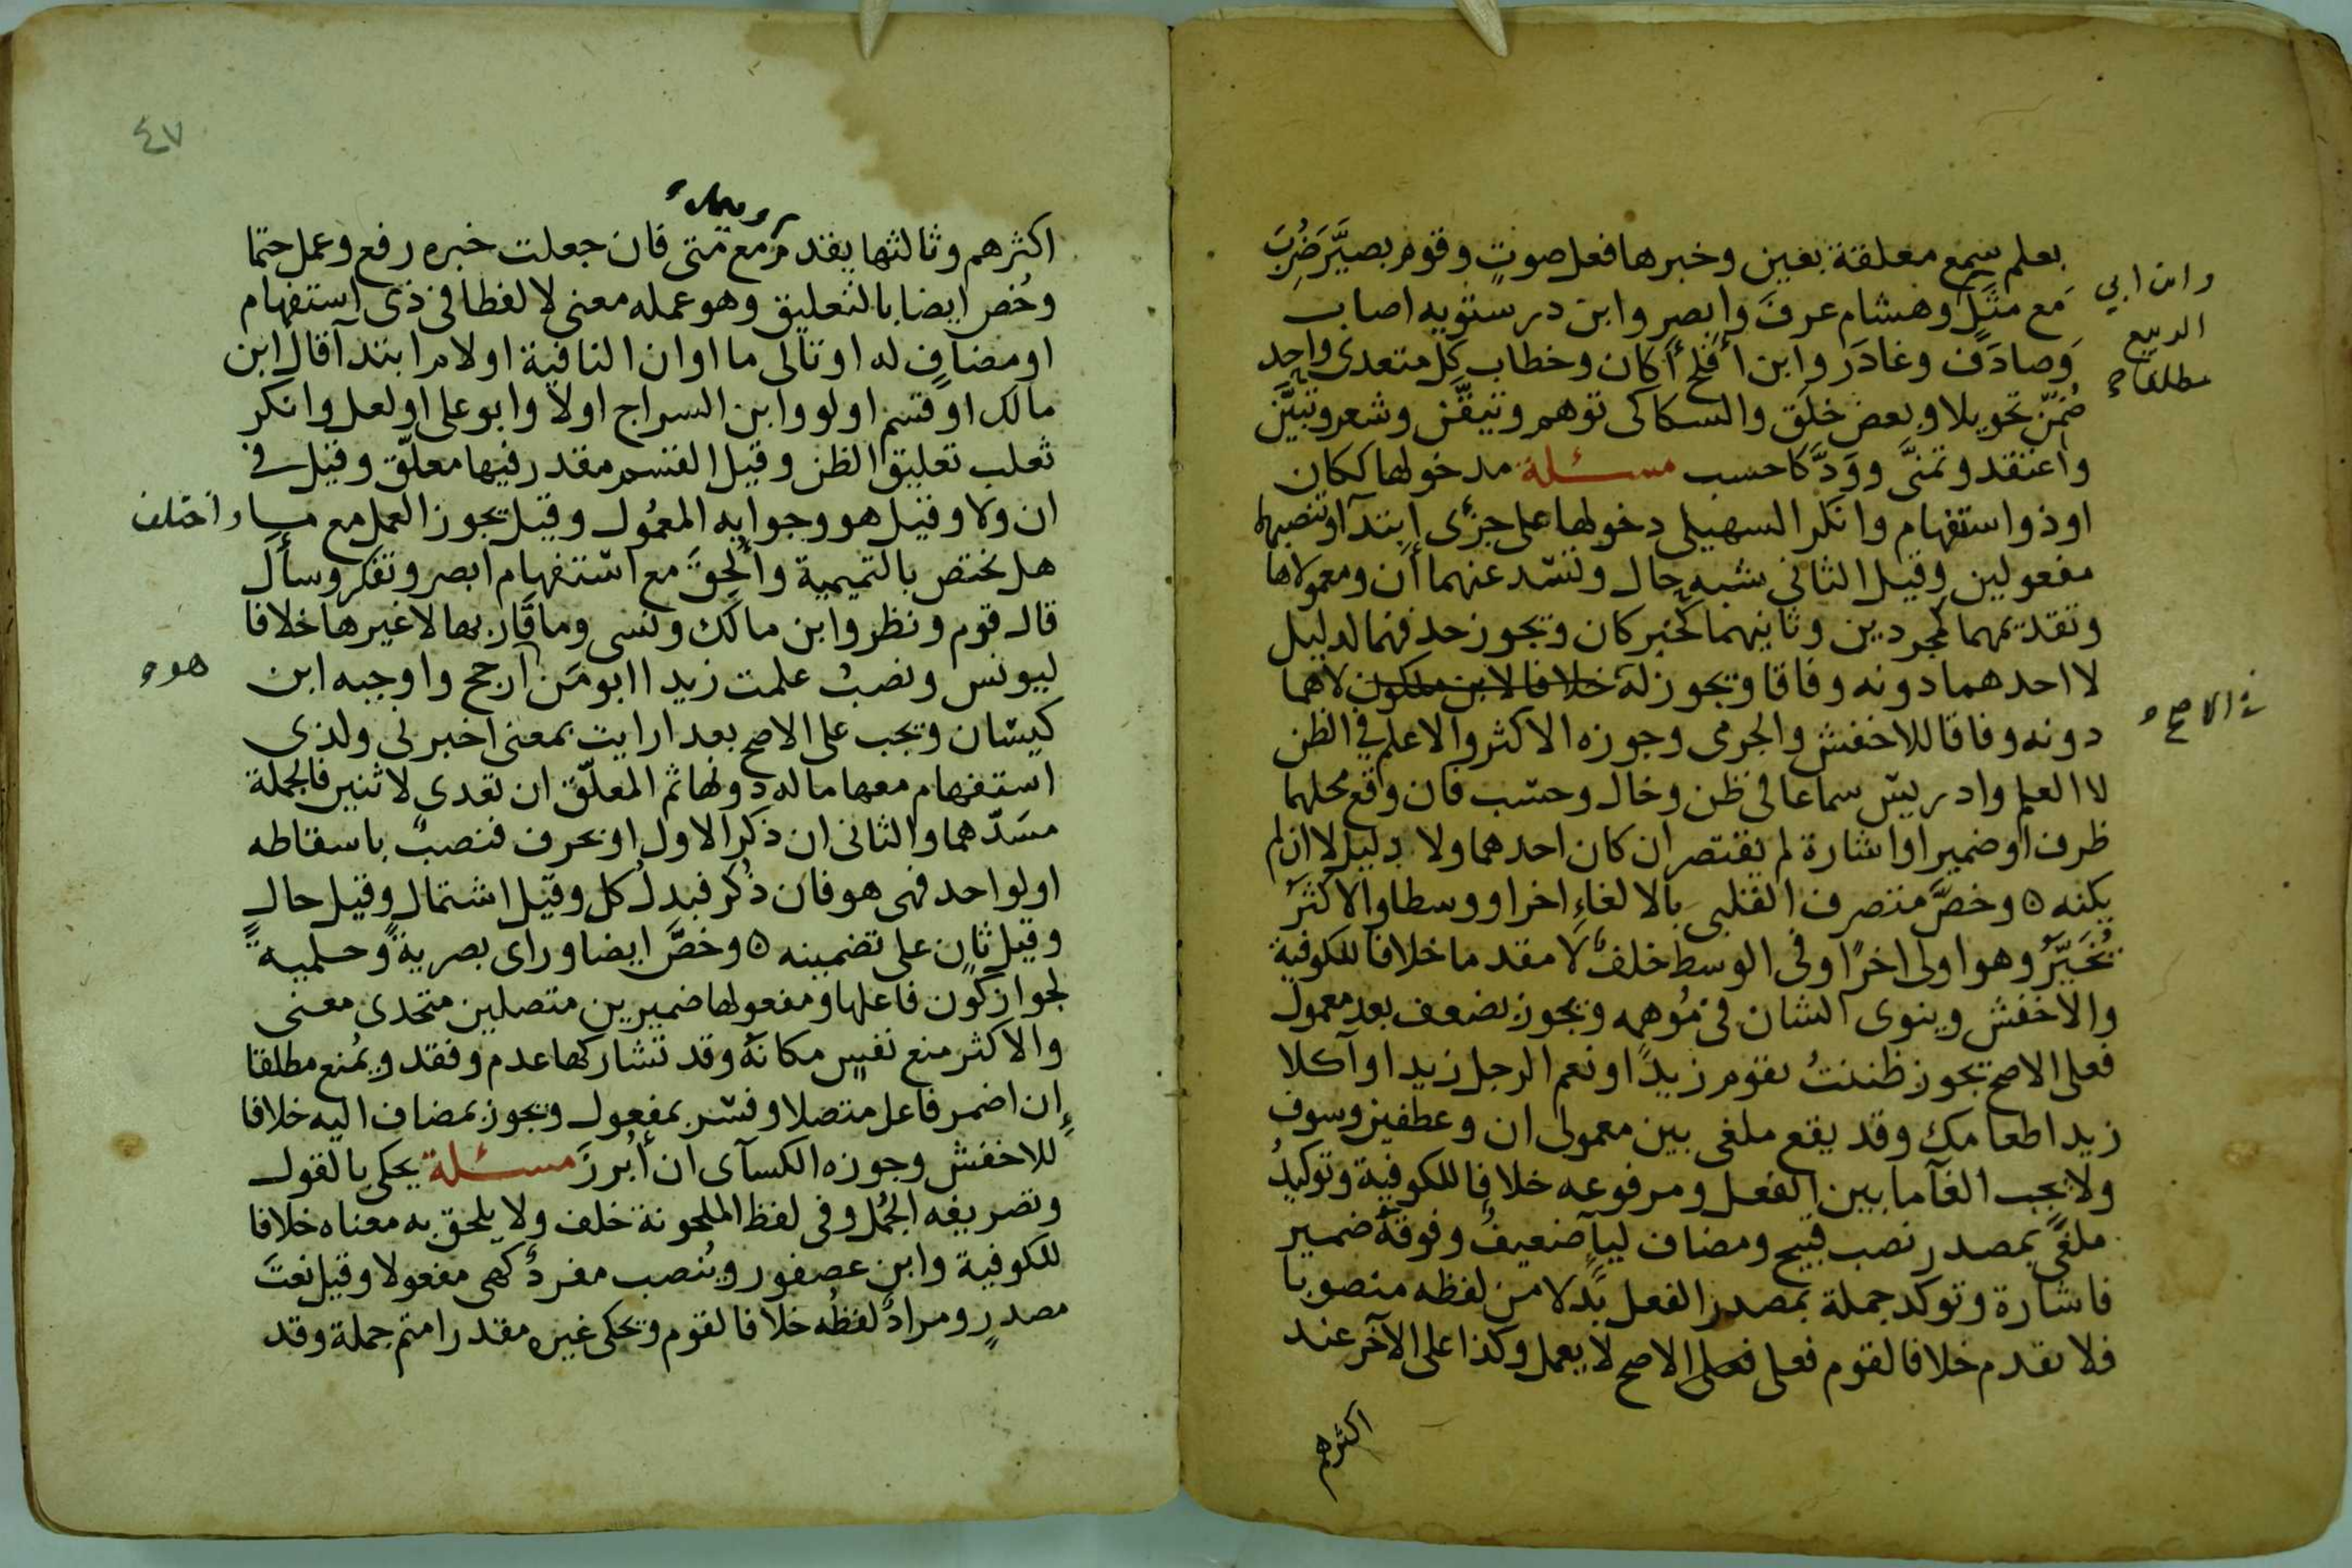 بعلم سمع معلقة بعين وخبرها فعل صوت وقوم بصيَّر ضُرِبَ
مَع مثَلٍ وهشام عرفَ وابصر وابن درستويه اصاب
وَصادَفَ وغادَر وابن افلح أكان وخطاب كل متعدى واحِد
ضُمِّن تحويلا وبعض خلَق والسكاكى توهم وتيقّن وشعر وتبيَّن
واعتقد وتمنَّى ووَدَّ كاحسب مسئلة مدخولها ككان
اوذو استفهام وانكر السهيلى دخولها على جزئى ابتدآ وتنصبهما
مفعولين وقيل الثانى شبه حال وتسد عنهما أن ومعمولاها
وتقديمهما كمجردين وثانيهما كخبر كان ويجوز حذفهما لدليل
لا احدهما دونه وفاقا ويجوز له خلافا لابن ملكون لاهما
دونه وفاقا للاخفش والجرمى وجوزه الاكثر والاعلم فى الظن
لا العلم وادريس سماعا فى ظن وخال وحسب فان وقع محلهما
ظرف او ضمير او اشارة لم يقتصر ان كان احدهما ولا دليل لا ان لم
يكنه ٥ وخصَّ متصرف القلبى بالالغاءِ اخرا ووسطا والاكثرُ
يُخَيَّرُ وهو اولى اخرًا وفى الوسط خلفٌ لا مقدما خلافا للكوفية
والاخفش وينوى الشان فى مُوهمه ويجوز بضعف بعد معمول
فعلى الاصح يجوز ظننتُ يقوم زيدًا ونعم الرجل زيدا وآكلا
زيدا طعامك وقد يقع ملغى بين معمولى ان وعطفين وسوف
ولا يجب الغآما بين الفعل ومرفوعه خلافا للكوفية وتوكيدُ
ملغًى بمصدر نصب قبيح ومضاف ليآ ضعيفٌ وفوقهُ ضمير
فاشارة وتوكد جملة بمصدر الفعل بَدلا من لفظه منصوبا
فلا يقدم خلافا لقوم فعلى فعلى الاصح لا يعمل وكذا على الآخر عند
اكثرهم
وابن ابي
الربيع
مطلقا
فى الاصح
٤٧
اكثرهم وثالثها يقدم مع متى فان جعلت خبره رفع وعمل حتما
وخُص ايضا بالتعليق وهو عمله معنى لا لفظا فى ذى استفهام
او مضاف له او تالى ما او ان النافية او لام ابتدآ قال ابن
مالك او قسم او لو وابن السراج اولا وابو على او لعل وانكر
ثعلب تعليق الظن وقيل القسم مقدر فيها معلّق وقيل فى
ان ولا وقيل هو وجوابه المعمُول وقيل يجوز العمل مع ما واختلف
هل يختص بالتميمية واُلحِقَ مع استفهام ابصر وتفكر وسأل
قال قوم ونظر وابن مالك ونسى وما قارَبها لا غيرها خلافا
ليونس ونصبُ علمت زيدا ابو مَن ارجح واوجبه ابن
كيسان ويجب على الاصح بعد ارايت بمعنى اخبرنى ولذى
استفهام معها ماله دونها ثم المعلّق ان تعدى لاثنين فالجملة
مسَدّهما والثانى ان ذكر الاول او بحرف فنصبٌ باسقاطه
او لواحد فهى هو فان ذُكر فبدلُ كل وقيل اشتمال وقيل حال
وقيل ثانٍ على تضمينه ٥ وخصَّ ايضا وراى بصريةً وحلميةً
بجواز كون فاعلها ومفعولها ضميرين متصلين متحدى معنى
والاكثر منع نفسٍ مكانهُ وقد تشاركها عدم وفقد ويُمنع مطلقا
إن اضمر فاعل متصلا وفسّر بمفعول ويجوز بمضاف اليه خلافا
للاخفش وجوزه الكسآى ان أبرزَ مسئلة يحكى بالقول
وتصريفه الجُمل وفى لفظ الملحونة خلف ولا يلحق به معناه خلافا
للكوفية وابن عصفور ويُنصب مفردٌ كهى مفعولا وقيل نعتَ
مصدرٍ ومرادٌ لفظُه خلافا لقوم ويحكى غيره مقدرا متم جملة وقد